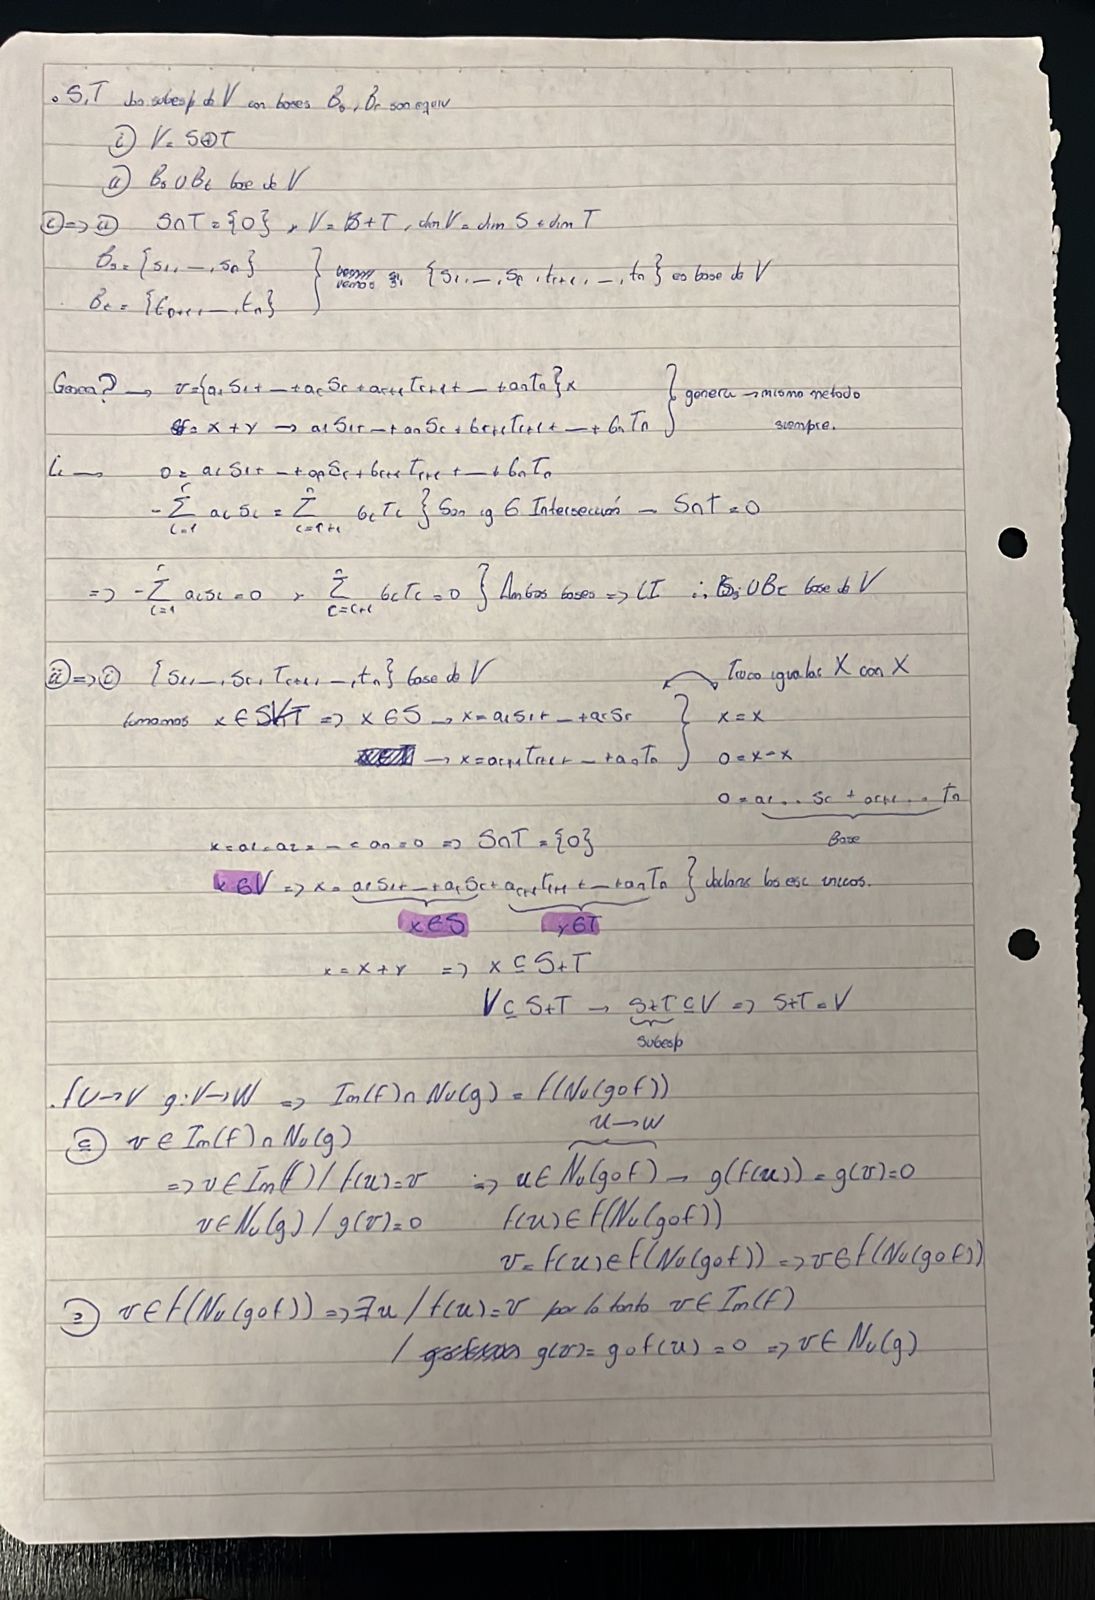 . S,T dos subesp de V con bases Bs, Bt son equiv
i) V = S⊕T
ii) Bs ∪ Bt base de V
i) => ii) S∩T = {0} y V = S+T, dim V = dim S + dim T
Bs = {s1, ..., sr}
Bt = {tr+1, ..., tn} } vemos si {s1, ..., sr, tr+1, ..., tn} es base de V
Genera? → v = {a1 S1 + ... + ar Sr + ar+1 Tr+1 + ... + an Tn} x
= x + y → a1 S1 + ... + an Sr + br+1 Tr+1 + ... + bn Tn } genera → mismo metodo siempre.
Li → 0 = a1 S1 + ... + an Sr + br+1 Tr+1 + ... + bn Tn
- Σ_{i=1}^{r} ai Si = Σ_{i=r+1}^{n} bi Ti } Son ig 6 Intersección → S∩T = 0
=> - Σ_{i=1}^{r} ai Si = 0 y Σ_{i=r+1}^{n} bi Ti = 0 } Ambos bases => LI ∴ Bs ∪ Bt base de V
ii) => i) {S1, ..., Sr, Tr+1, ..., tn} base de V
Truco igualas X con X
tomamos x ∈ S∩T => x ∈ S → x = a1 S1 + ... + ar Sr } x = x
→ x = ar+1 Tr+1 + ... + an Tn 0 = x - x
0 = a1 .. Sr + ar+1 ... Tn
Base
x = a1 = a2 = ... = an = 0 => S∩T = {0}
x ∈ V => x = a1 S1 + ... + ar Sr + ar+1 Tr+1 + ... + an Tn } declaro los esc unicos.
x ∈ S y ∈ T
x = x + y => x ⊆ S+T
V ⊆ S+T → S+T ⊆ V => S+T = V
Subesp
. f U→V g: V→W => Im(f) ∩ Nu(g) = f(Nu(gof))
⊆) v ∈ Im(f) ∩ Nu(g) u→w
=> v ∈ Im(f) / f(u) = v => u ∈ Nu(gof) → g(f(u)) = g(v) = 0
v ∈ Nu(g) / g(v) = 0 f(u) ∈ f(Nu(gof))
v = f(u) ∈ f(Nu(gof)) => v ∈ f(Nu(gof))
⊇) v ∈ f(Nu(gof)) => ∃ u / f(u) = v por lo tanto v ∈ Im(f)
/ g(v) = gof(u) = 0 => v ∈ Nu(g)